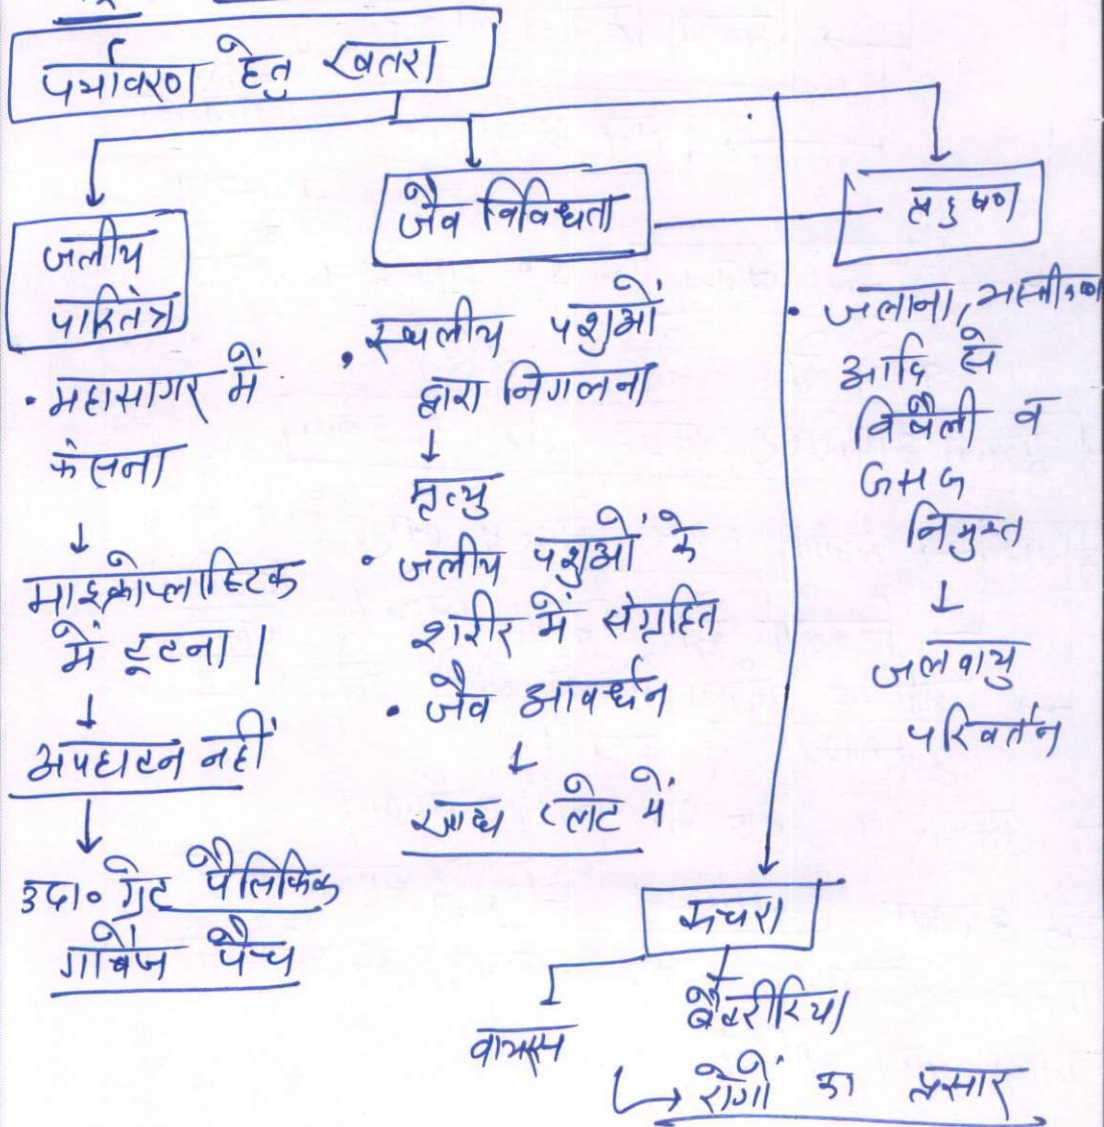 पर्यावरण हेतु खतरा
जलीय
पारितंत्र
• महासागर में
फेंसना
↓
माइक्रोप्लास्टिक
में टूटना |
↓
अपघटन नहीं
↓
उदा० ग्रेट पैसिफिक
गार्बेज पैच
जैव विविधता
• स्थलीय पशुओं
द्वारा निगलना
↓
मृत्यु
• जलीय पशुओं के
शरीर में संग्रहित
• जैव आवर्धन
↓
खाद्य प्लेट में
प्रदुषण
• जलाना, भस्मीकरण
आदि से
विषैली व
GHG
विमुक्त
↓
जलवायु
परिवर्तन
कचरा
वायरस
बैक्टीरिया
→ रोगों का प्रसार